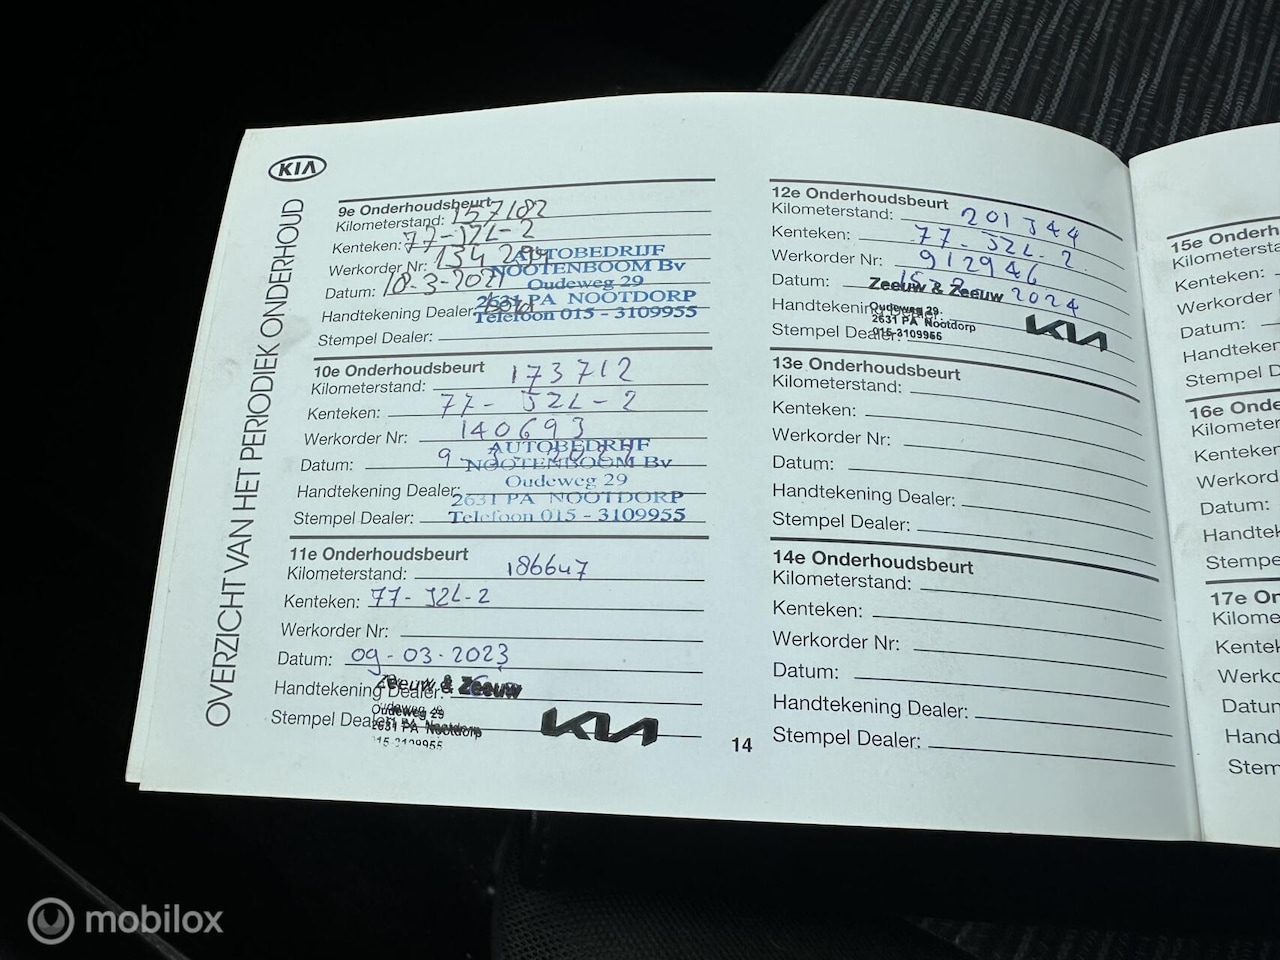 KIA
OVERZICHT VAN HET PERIODIEK ONDERHOUD
9e Onderhoudsbeurt
Kilometerstand: 157182
Kenteken: 77-JZL-2
Werkorder Nr: 134
Datum: 18-3-2021
Handtekening Dealer:
Stempel Dealer:
AUTOBEDRIJF
NOOTENBOOM Bv
Oudeweg 29
2631 PA NOOTDORP
Telefoon 015 - 3109955
10e Onderhoudsbeurt
Kilometerstand: 173712
Kenteken: 77-JZL-2
Werkorder Nr: 140693
Datum: 9
Handtekening Dealer:
Stempel Dealer:
AUTOBEDRIJF
NOOTENBOOM Bv
Oudeweg 29
2631 PA NOOTDORP
Telefoon 015 - 3109955
11e Onderhoudsbeurt
Kilometerstand: 186647
Kenteken: 77-JZL-2
Werkorder Nr:
Datum: 09-03-2023
Handtekening Dealer:
Stempel Dealer:
Zeeuw & Zeeuw
Oudeweg 29
2631 PA Nootdorp
15-3109955
KIA
14
12e Onderhoudsbeurt
Kilometerstand: 201344
Kenteken: 77-JZL-2.
Werkorder Nr: 912946
Datum: 2024
Handtekening
Stempel Dealer:
Zeeuw & Zeeuw
Oudeweg 29
2631 PA Nootdorp
015-3109955
KIA
13e Onderhoudsbeurt
Kilometerstand:
Kenteken:
Werkorder Nr:
Datum:
Handtekening Dealer:
Stempel Dealer:
14e Onderhoudsbeurt
Kilometerstand:
Kenteken:
Werkorder Nr:
Datum:
Handtekening Dealer:
Stempel Dealer:
15e Onderh
Kilometersta
Kenteken:
Werkorder
Datum:
Handteken
Stempel D
16e Onde
Kilometer
Kenteke
Werkord
Datum:
Handte
Stempe
17e On
Kilome
Kentek
Werko
Datum
Hand
Stem
mobilox